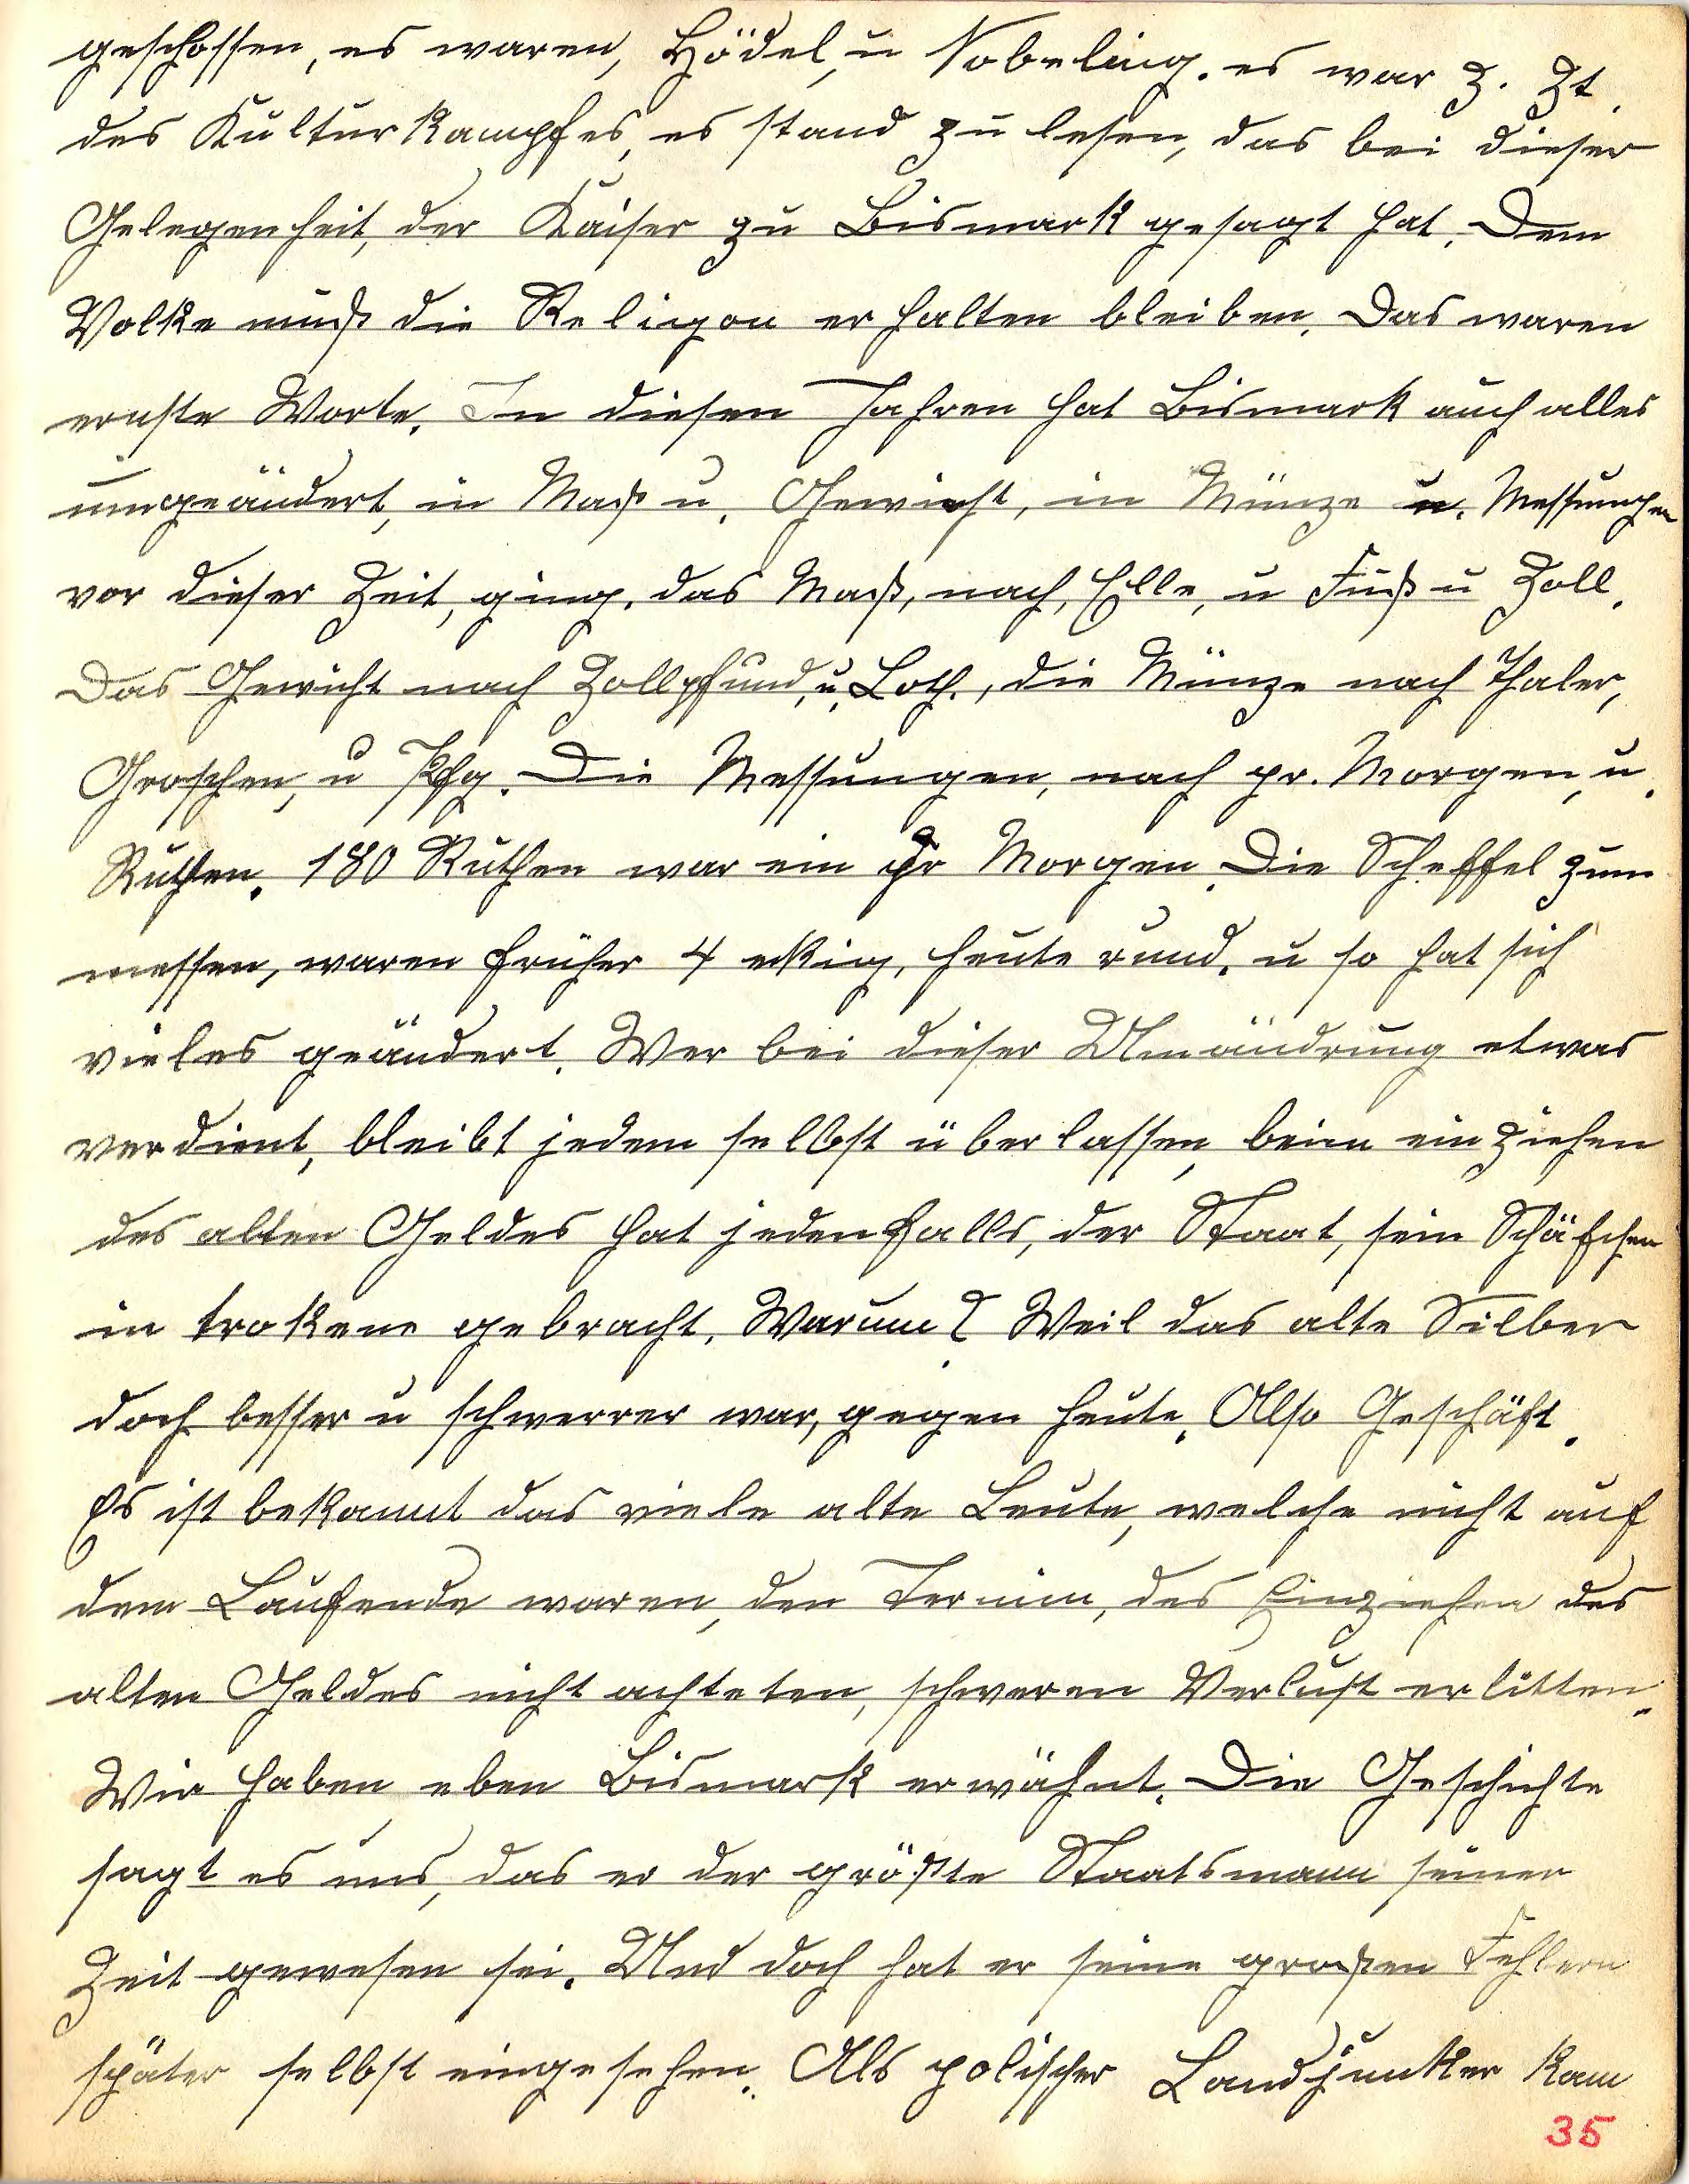 geschossen, es waren, Hödel, u Nobeling. es war z. Zt.
des Kulturkampfes, es stand zu lesen, das bei dieser
Gelegenheit, der Kaiser zu Bismark gesagt hat. Dem
Volke muß die Religon erhalten bleiben. Das waren
ernste Worte. In diesen Jahren hat Bismark auch alles
umgeändert, in Maß u. Gewicht, in Münze u. Messungen
vor dieser Zeit, ging, das Maß, nach, Elle, u Fuß u Zoll.
Das Gewicht nach Zollpfund, u. Loth., die Münze nach Thaler,
Groschen, u Pfg. Die Messungen, nach pr. Morgen, u.
Ruthen. 180 Ruthen war ein pr Morgen. Die Scheffel zum
messen, waren früher 4 eckig, heute rund. u so hat sich
vieles geändert. Wer bei dieser Umändrung etwas
verdient, bleibt jedem selbst überlassen, beim einziehen
des alten Geldes hat jedenfalls, der Staat, sein Schäfchen
in trokene gebracht. Warum? Weil das alte Silber
doch besser u schwerrer war, gegen heute. Also Geschäft.
Es ist bekannt das viele alte Leute, welche nicht auf
dem Laufende waren, den Termin, des Einziehen des
alten Geldes nicht achteten, schweren Verlust erlitten.
Wir haben eben Bismark erwähnt. Die Geschichte
sagt es uns, das er der größte Staatsmann seiner
Zeit gewesen sei. Und doch hat er seine großen Fehlern
später selbst eingesehen. Als polischer Landjunker kam
35